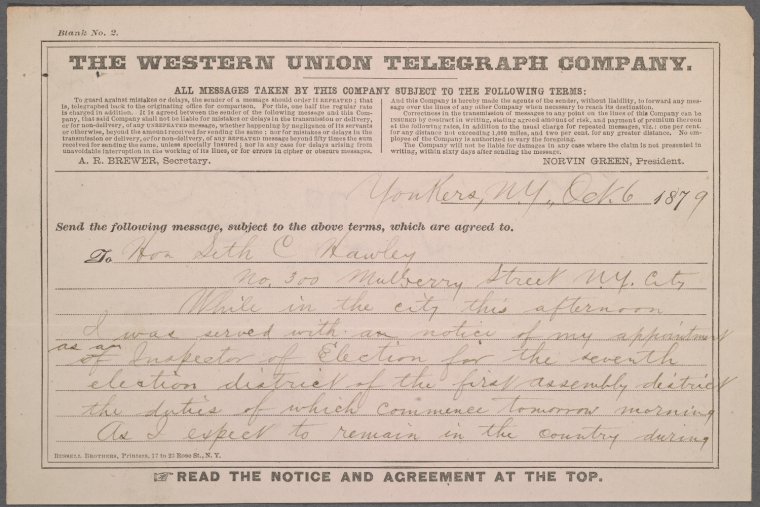 Blank No. 2.
THE WESTERN UNION TELEGRAPH COMPANY.
ALL MESSAGES TAKEN BY THIS COMPANY SUBJECT TO THE FOLLOWING TERMS:
To guard against mistakes or delays, the sender of a message should order it REPEATED; that
is, telegraphed back to the originating office for comparison. For this, one half the regular rate
is charged in addition. It is agreed between the sender of the following message and this Com-
pany, that said Company shall not be liable for mistakes or delays in the transmission or delivery,
or for non-delivery, of any UNREPEATED message, whether happening by negligence of its servants
or otherwise, beyond the amount received for sending the same; nor for mistakes or delays in the
transmission or delivery, or for non-delivery, of any REPEATED message beyond fifty times the sum
received for sending the same, unless specially insured; nor in any case for delays arising from
unavoidable interruption in the working of its lines, or for errors in cipher or obscure messages.
A. R. BREWER, Secretary.
And this Company is hereby made the agent of the sender, without liability, to forward any mes-
sage over the lines of any other Company when necessary to reach its destination.
Correctness in the transmission of messages to any point on the lines of this Company can be
insured by contract in writing, stating agreed amount of risk, and payment of premium thereon
at the following rates, in addition to the usual charge for repeated messages, viz.: one per cent.
for any distance not exceeding 1,000 miles, and two per cent. for any greater distance. No em-
ployee of the Company is authorized to vary the foregoing.
The Company will not be liable for damages in any case where the claim is not presented in
writing, within sixty days after sending the message.
NORVIN GREEN, President.
Yonkers, N.Y., Oct. 6 1879
Send the following message, subject to the above terms, which are agreed to.
To Hon Seth C Hawley
No. 300 Mulberry Street N.Y. City
While in the city this afternoon
I was served with an notice of my appointment
as an
of Inspector of Election for the seventh
election district of the first assembly district
the duties of which commence tomorrow morning
As I expect to remain in the country during
RUSSELL BROTHERS, Printers, 17 to 23 Rose St., N. Y.
☞ READ THE NOTICE AND AGREEMENT AT THE TOP.